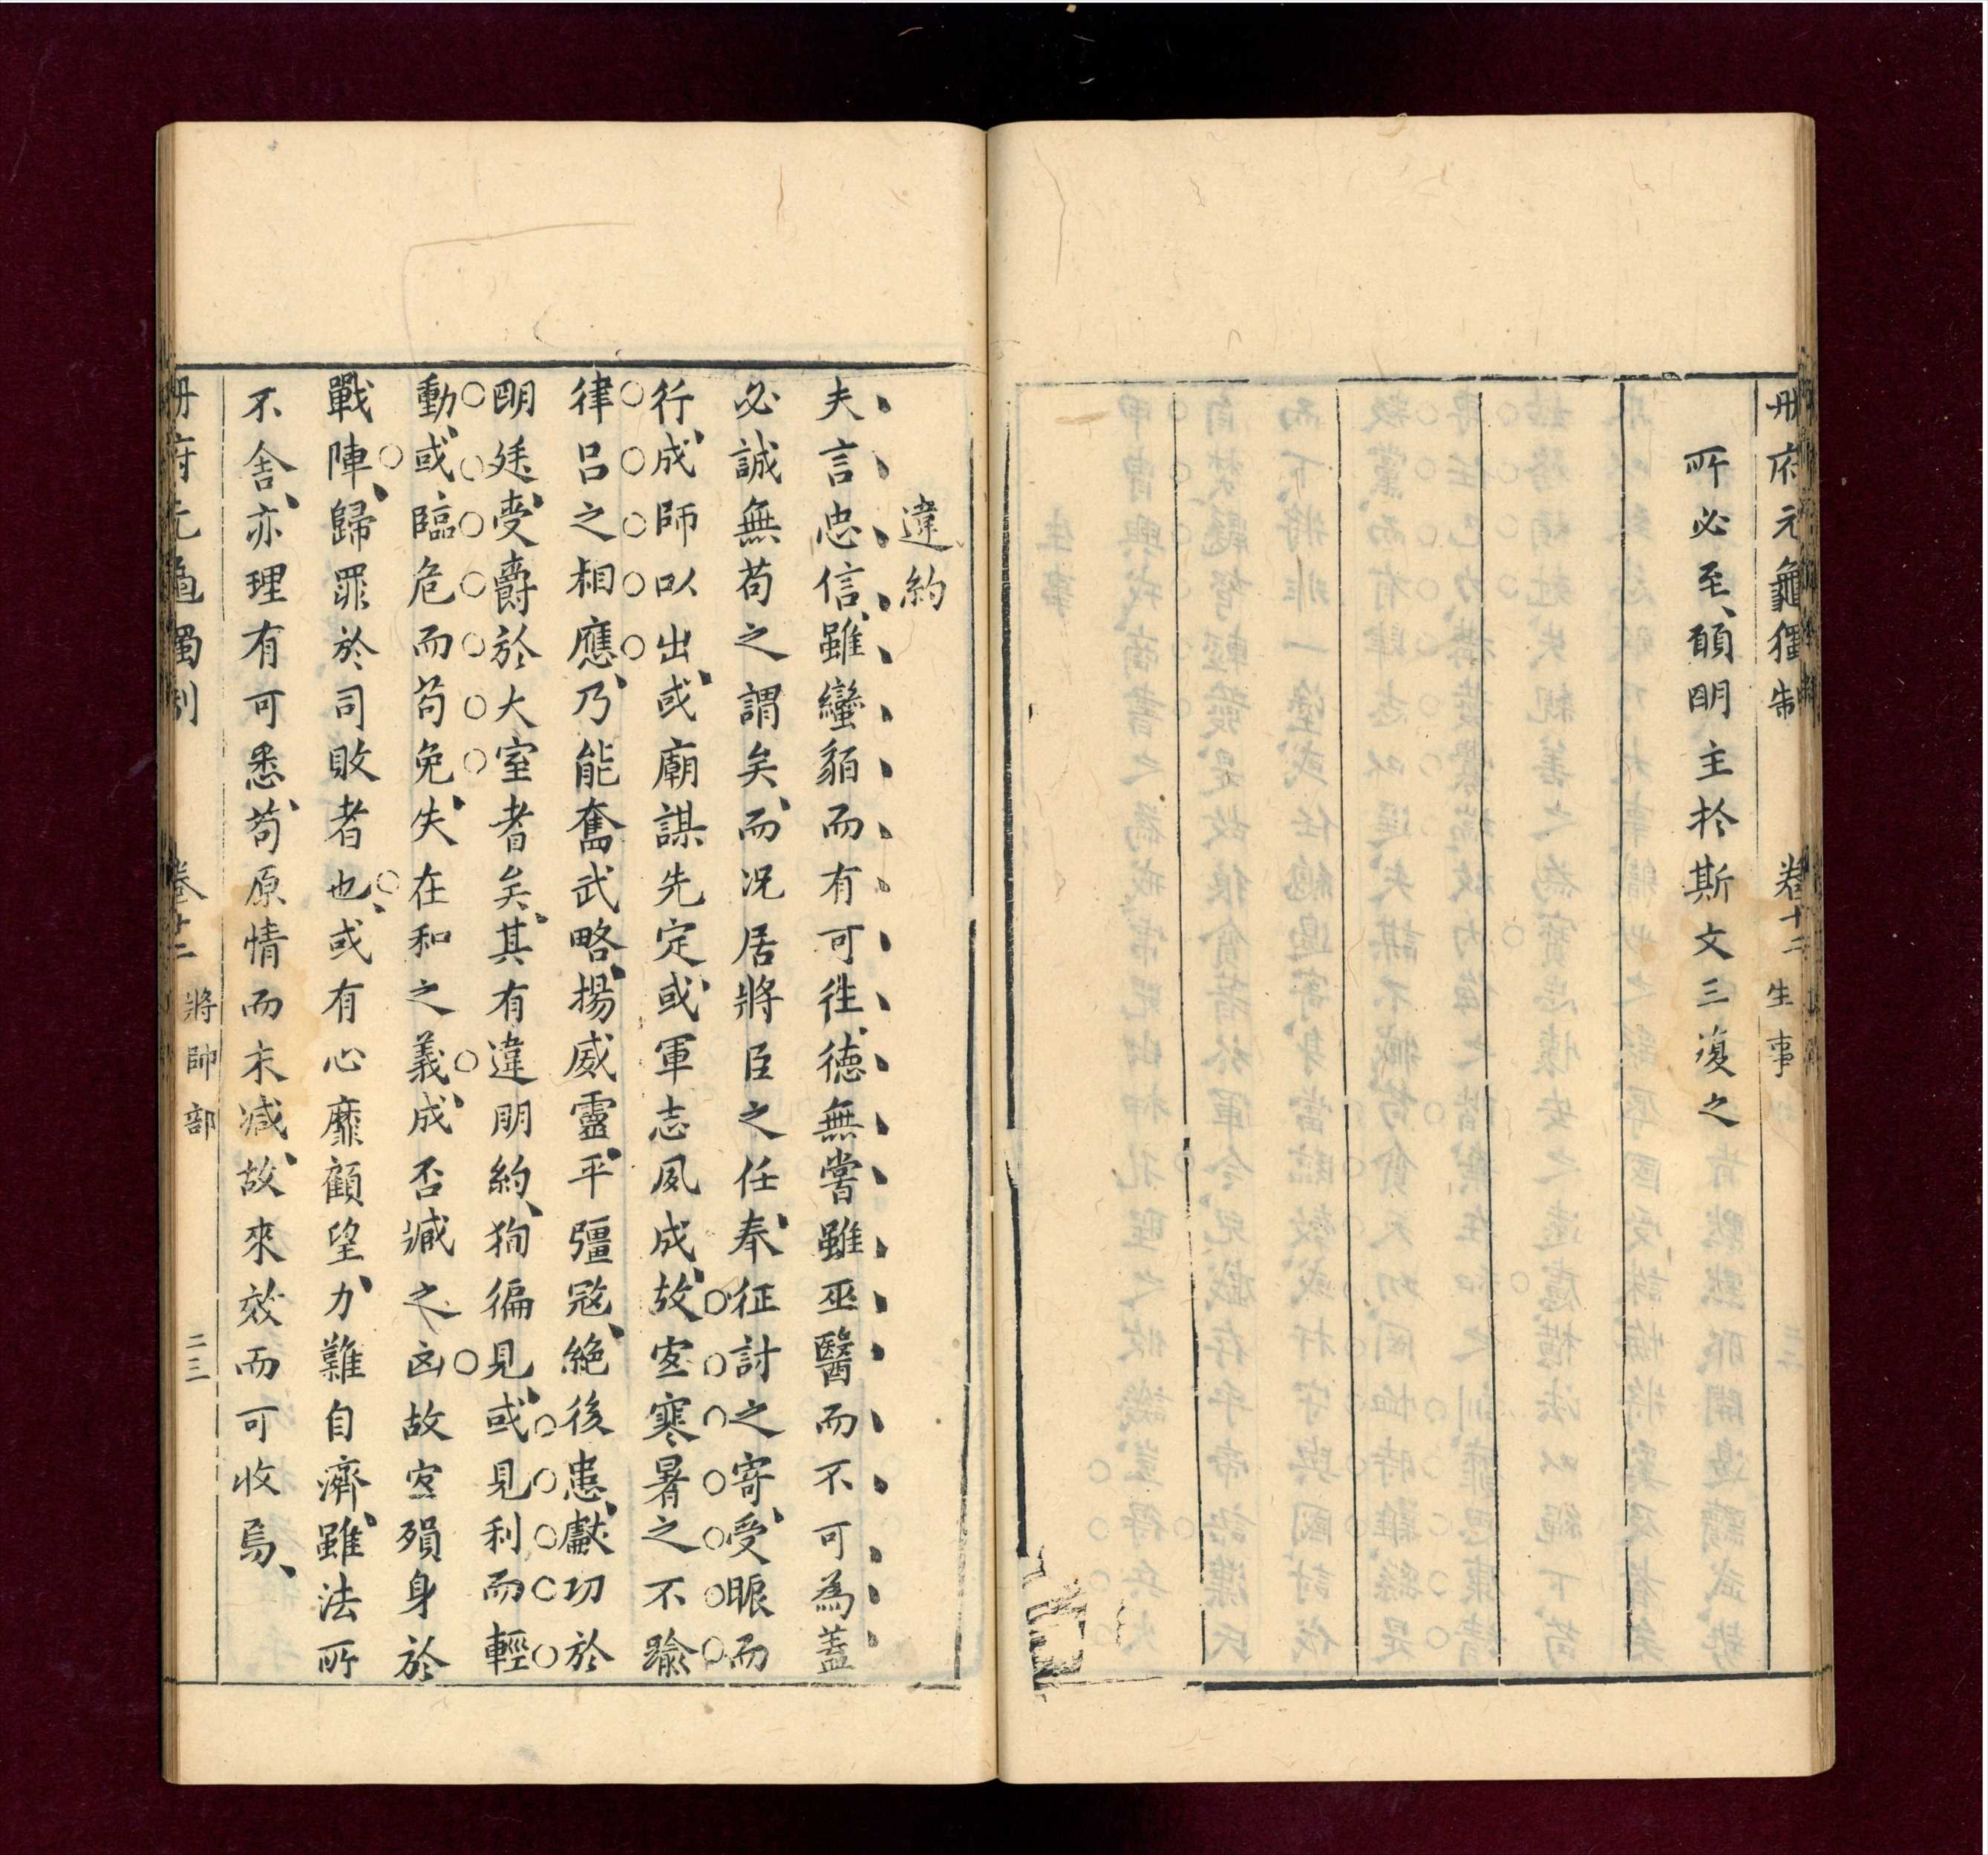 册府元龜獨制 卷十二 生事
所必至願明主於斯文三復之
違約
夫言忠信雖蠻貊而有可徃德無嘗雖巫醫而不可為蓋
必誠無苟之謂矣而况居將臣之任奉征討之寄受脤而
行成師以出或廟謀先定或軍志夙成故宜寒暑之不踰
律呂之相應乃能奮武略揚威靈平彊寇絶後患獻功於
明廷受爵於大室者矣其有違朋約狥徧見或見利而輕
動或臨危而苟免失在和之義成否臧之凶故宜殞身於
戰陣歸罪於司敗者也或有心靡顧望力難自濟雖法所
不舍亦理有可悉苟原情而末减故來效而可收焉
册府元龜獨制 卷十二 將帥部 二三